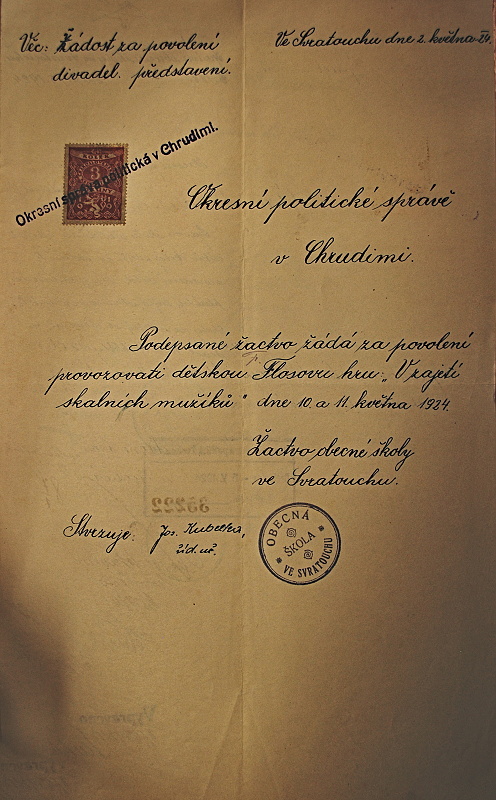 Věc: Žádost za povolení
divadel. představení.
Ve Svratouchu dne 2. května 24.
KOLEK
3
Okresní správa politická v Chrudimi.
Okresní politické správě
v Chrudimi.
Podepsané žactvo žádá za povolení
provozovati dětskou F. Flosovu hru: „V zajetí
skalních mužíků" dne 10. a 11. května 1924.
Žactvo obecné školy
ve Svratouchu.
35222
Stvrzuje: Jos. Kubelka,
říd. uč.
OBECNÁ
ŠKOLA
VE SVRATOUCHU